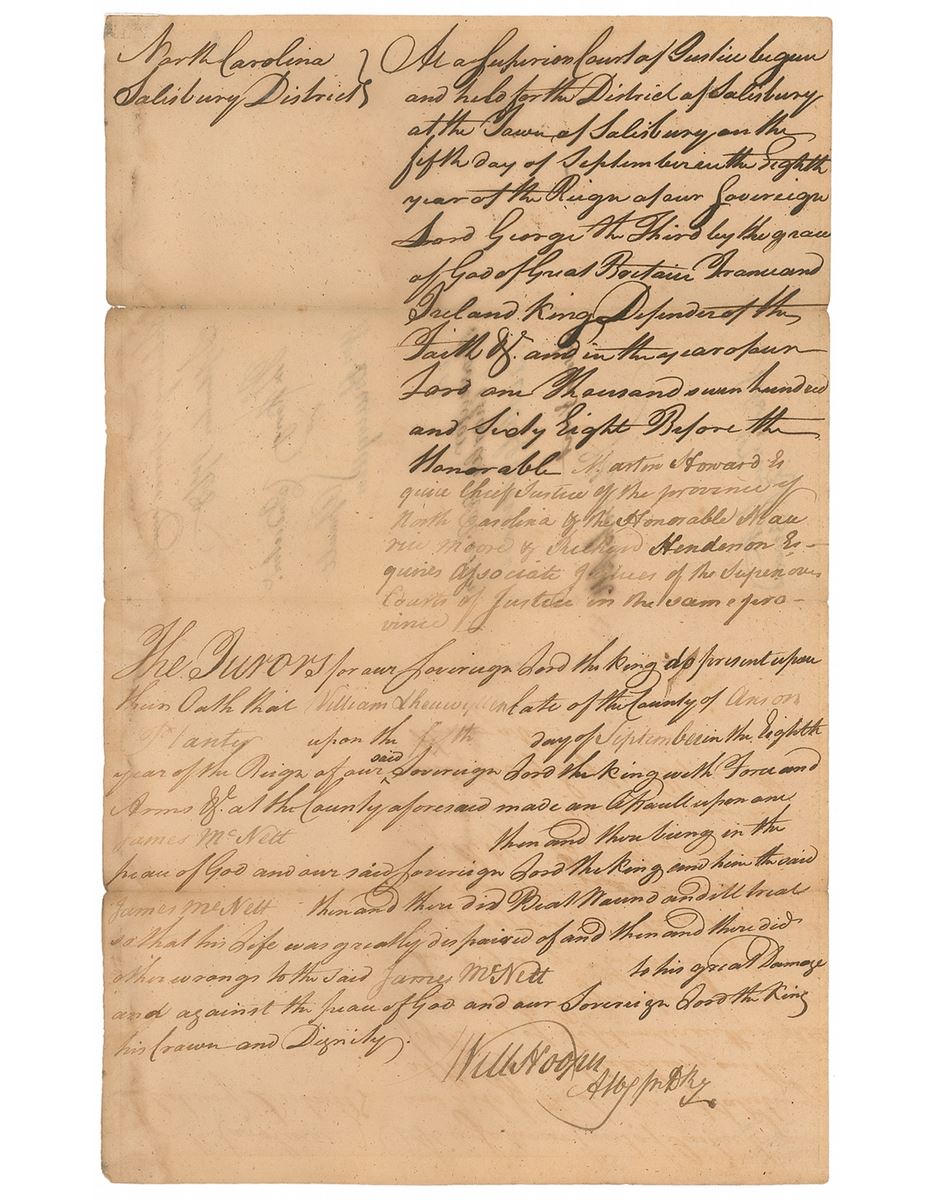 North Carolina
Salisbury District
At a Superior Court of Justice begun
and held for the District of Salisbury
at the Town of Salisbury on the
fifth day of September in the Eighth
year of the Reign of our Sovereign
Lord George the Third by the grace
of God of Great Britain France and
Ireland King Defender of the
Faith &c. and in the year of our
Lord one Thousand seven hundred
and Sixty Eight Before the
Honorable Martin Howard Es
quire Chief Justice of the province of
North Carolina & the Honorable Mau
rice Moore & Richard Henderson Es-
quires Associate Justices of the Superiour
Courts of Justice in the same pro-
vince
The Jurors for our Sovereign Lord the King do present upon
their Oath that William late of the County of Anson
Planter upon the fifth day of September in the Eighth
year of the Reign of our said Sovereign Lord the King with Force and
Arms &c. at the County aforesaid made an Assault upon one
James McNett then and there being in the
peace of God and our said Sovereign Lord the King and him the said
James McNett then and there did Beat Wound and ill treat
so that his Life was greatly dispaired of and then and there did
other wrongs to the said James McNett to his great Damage
and against the peace of God and our Sovereign Lord the King
his Crown and Dignity.
Will Hooper